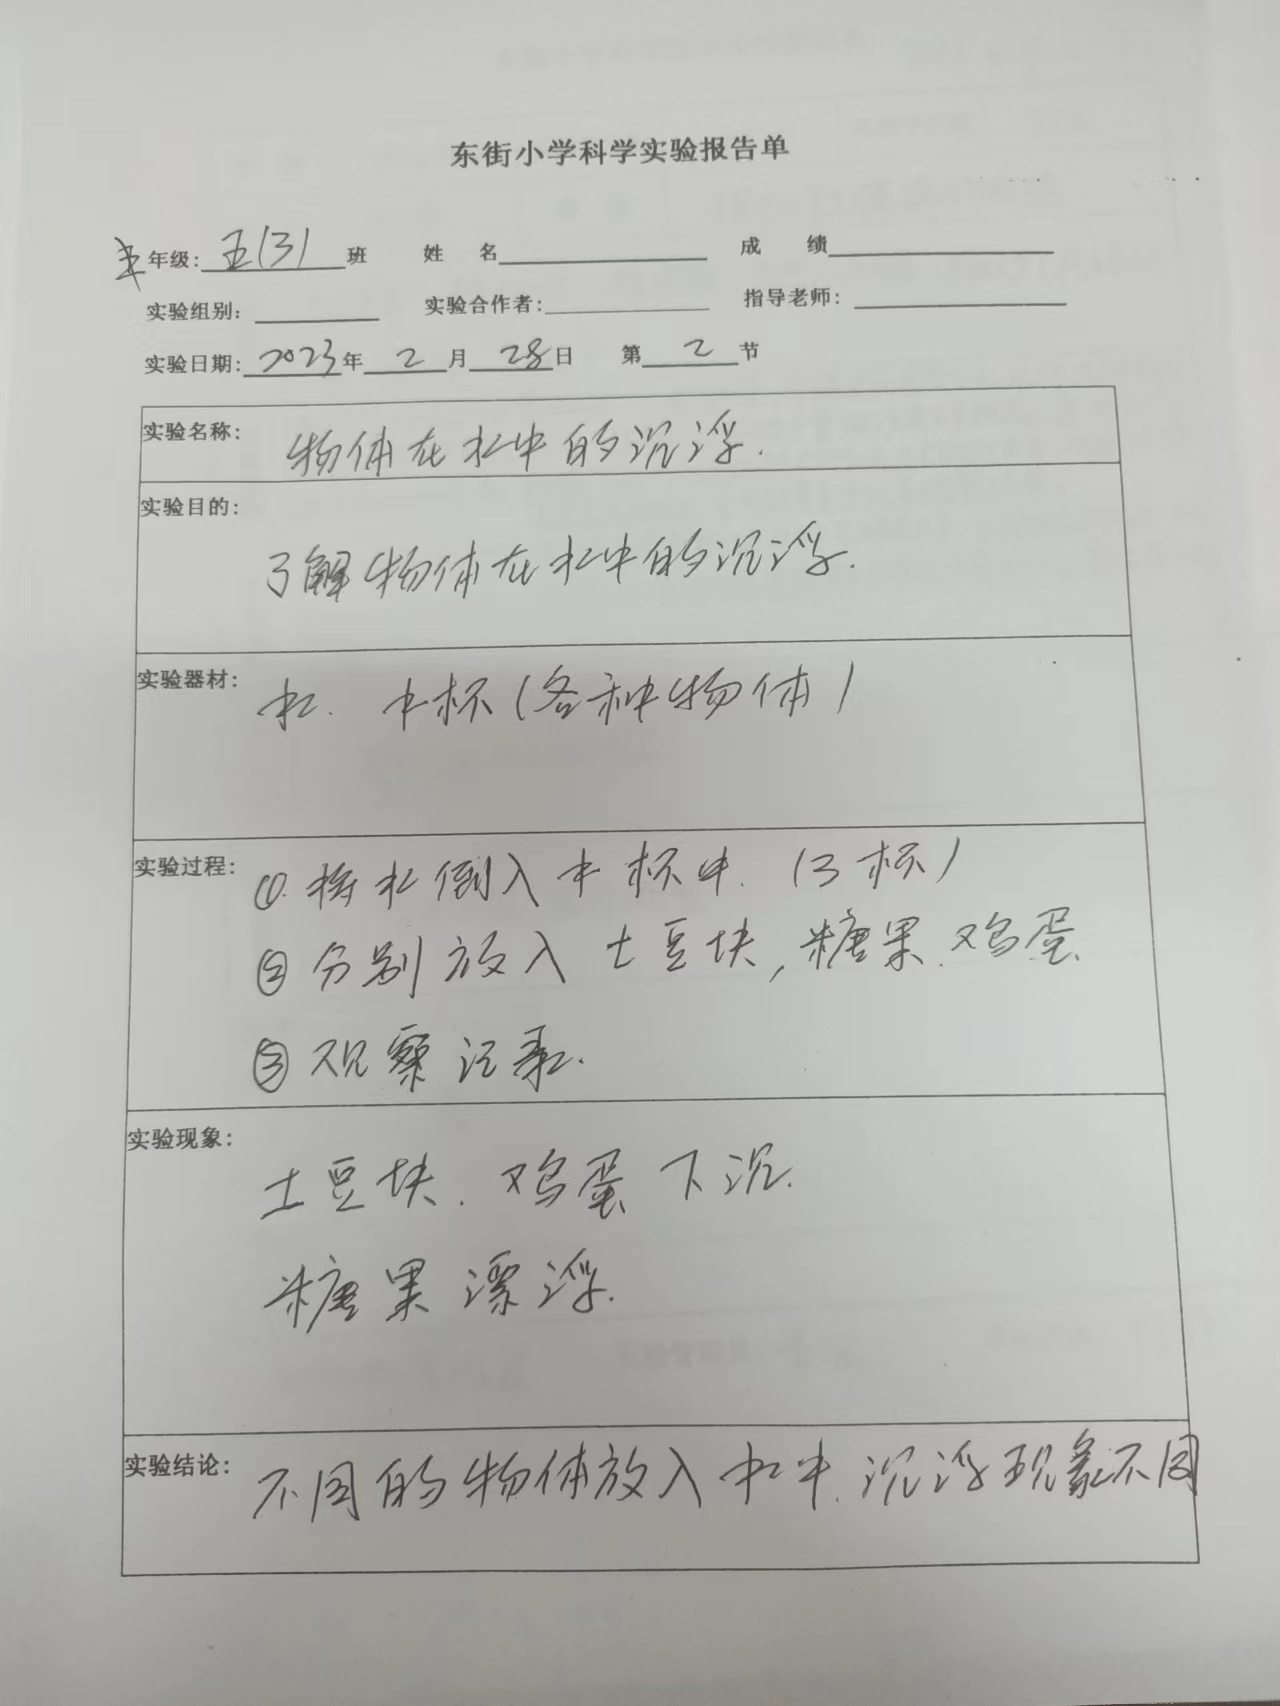 东街小学科学实验报告单
五年级：五（3）班 姓 名 成 绩
实验组别： 实验合作者： 指导老师：
实验日期：2023年2月28日 第2节
实验名称： 物体在水中的沉浮.
实验目的：
了解物体在水中的沉浮.
实验器材： 水. 水杯（各种物体）
实验过程： ①. 将水倒入水杯中.（3杯）
② 分别放入土豆块,糖果.鸡蛋.
③ 观察记录.
实验现象：
土豆块. 鸡蛋下沉.
糖果漂浮.
实验结论： 不同的物体放入水中.沉浮现象不同